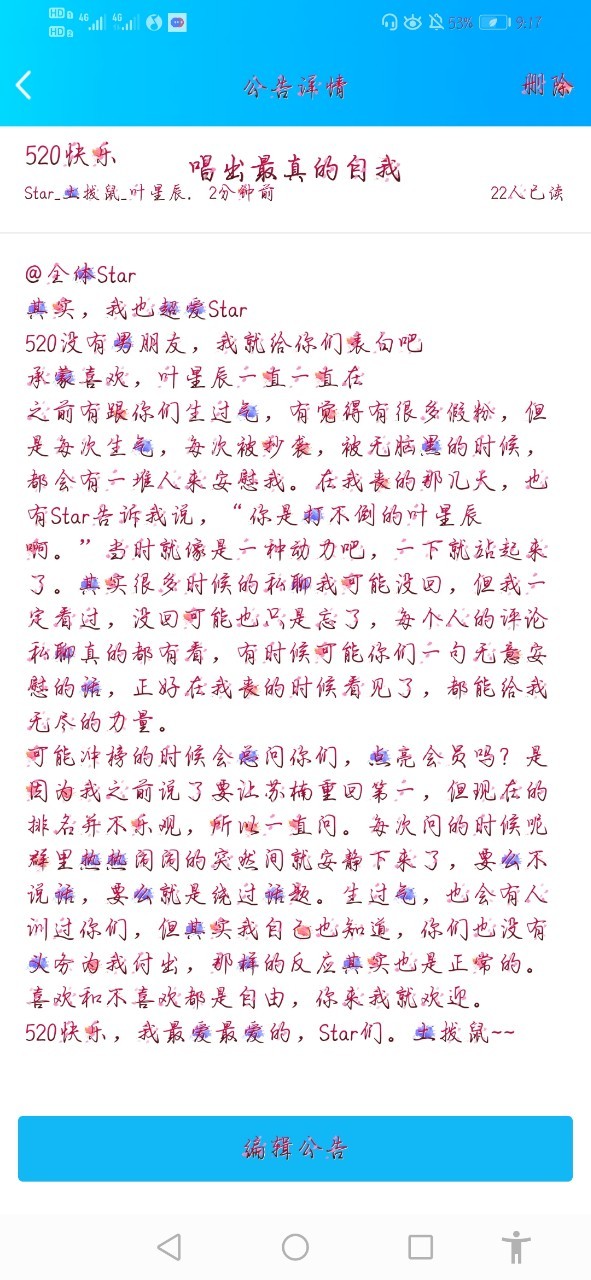 HD 2 4G 4G 53% 9:17
HD 2
公告详情 删除
520快乐
唱出最真的自我
Star_土拨鼠_叶星辰. 2分钟前 22人已读
@全体Star
其实，我也超爱Star
520没有男朋友，我就给你们表白吧
承蒙喜欢，叶星辰一直一直在
之前有跟你们生过气，有觉得有很多假粉，但
是每次生气，每次被抄袭，被无脑黑的时候，
都会有一堆人来安慰我。在我丧的那几天，也
有Star告诉我说，“你是打不倒的叶星辰
啊。”当时就像是一种动力吧，一下就站起来
了。其实很多时候的私聊我可能没回，但我一
定看过，没回可能也只是忘了，每个人的评论
私聊真的都有看，有时候可能你们一句无意安
慰的话，正好在我丧的时候看见了，都能给我
无尽的力量。
可能冲榜的时候会总问你们，点亮会员吗？是
因为我之前说了要让苏楠重回第一，但现在的
排名并不乐观，所以一直问。每次问的时候呢
群里热热闹闹的突然间就安静下来了，要么不
说话，要么就是绕过话题。生过气，也会有人
训过你们，但其实我自己也知道，你们也没有
义务为我付出，那样的反应其实也是正常的。
喜欢和不喜欢都是自由，你来我就欢迎。
520快乐，我最爱最爱的，Star们。土拨鼠~~
编辑公告